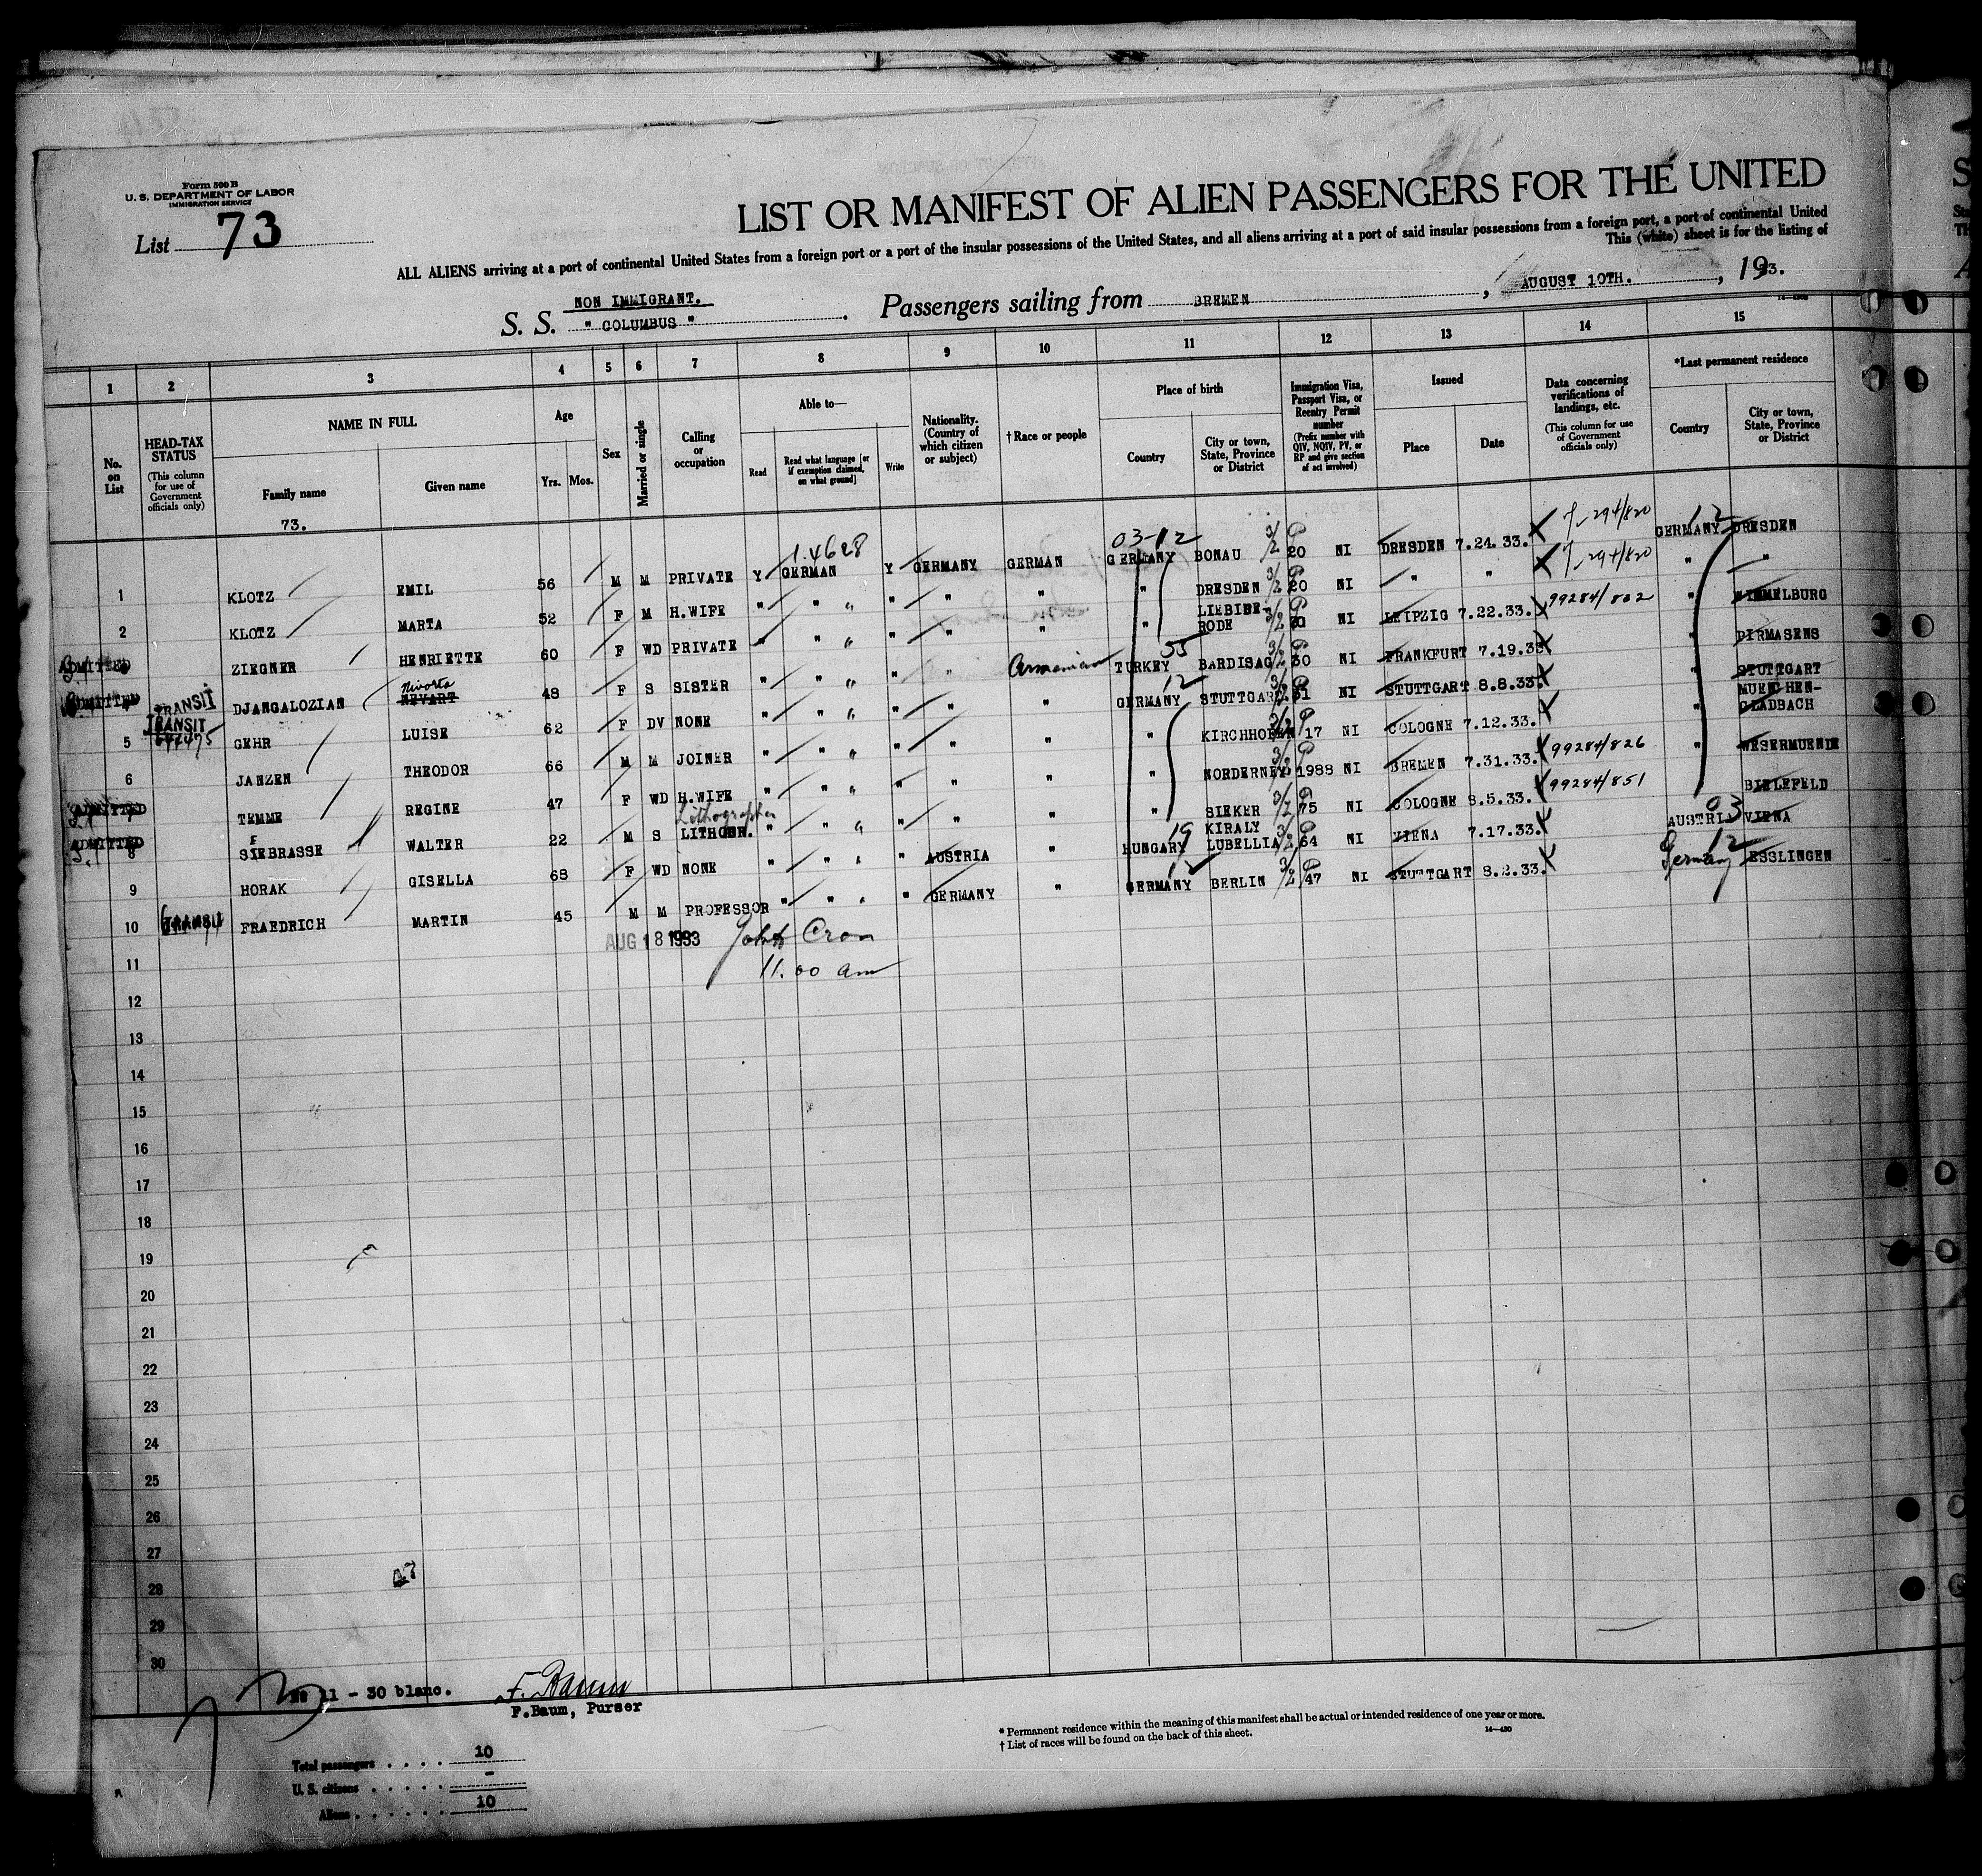 Form 500 B
U. S. DEPARTMENT OF LABOR
IMMIGRATION SERVICE
List 73
LIST OR MANIFEST OF ALIEN PASSENGERS FOR THE UNITED
ALL ALIENS arriving at a port of continental United States from a foreign port or a port of the insular possessions of the United States, and all aliens arriving at a port of said insular possessions from a foreign port, a port of continental United
This (white) sheet is for the listing of
NON IMMIGRANT.
S. S. " COLUMBUS " . Passengers sailing from BREMEN , AUGUST 10TH. , 1933.
1 2 3 4 5 6 7 8 9 10 11 12 13 14 15
No. on List
HEAD-TAX STATUS
(This column for use of Government officials only)
NAME IN FULL
Family name
Given name
Age
Yrs. Mos.
Sex
Married or single
Calling or occupation
Able to—
Read
Read what language [or if exemption claimed, on what ground]
Write
Nationality. (Country of which citizen or subject)
† Race or people
Place of birth
Country
City or town, State, Province or District
Immigration Visa, Passport Visa, or Reentry Permit number
(Prefix number with QIV, NQIV, PV, or RP and give section of act involved)
Issued
Place
Date
Data concerning verifications of landings, etc.
(This column for use of Government officials only)
*Last permanent residence
Country
City or town, State, Province or District
73.
1.4628 03-12 12
1 KLOTZ EMIL 56 M M PRIVATE Y GERMAN Y GERMANY GERMAN GERMANY BONAU 20 NI DRESDEN 7.24.33. GERMANY DRESDEN
2 KLOTZ MARTA 52 F M H.WIFE " " " " " " " DRESDEN 20 NI " " " "
ADMITTED ZIEGNER HENRIETTE 60 F WD PRIVATE " " " " " " " LIEBINE-RODE NI LEIPZIG 7.22.33. 99284/832 " HIMMELBURG
ADMITTED DJANGALOZIAN NEVART Nivorta 48 F S SISTER " " " " " " Armenian TURKEY 55 BARDISAG 30 NI FRANKFURT 7.19.33 " PIRMASENS
TRANSIT
TRANSIT
5 GEHR LUISE 62 F DV NONE " " " " " " GERMANY 12 STUTTGART 31 NI STUTTGART 8.8.33. " STUTTGART
6 JANZEN THEODOR 66 M M JOINER " " " " " " " KIRCHHOFEN 17 NI COLOGNE 7.12.33. MUENCHEN-GLADBACH
ADMITTED TEMME REGINE 47 F WD H.WIFE " " " " " " " NORDERNEY 1988 NI BREMEN 7.31.33. 99284/826 " WESERMUENDE
ADMITTED 8 SIEBRASSE WALTER 22 M S LITHOGR. Lithographer " " " " " " " SIEKER 75 NI COLOGNE 8.5.33. 99284/851 BIELEFELD
9 HORAK GISELLA 68 F WD NONE " " " " AUSTRIA " HUNGARY 19 KIRALY LUBELLIA 64 NI VIENA 7.17.33. AUSTRIA 03 VIENA
10 TRANSIT FRAEDRICH MARTIN 45 M M PROFESSOR " " " " GERMANY " GERMANY 12 BERLIN 47 NI STUTTGART 8.2.33. Germany 12 ESSLINGEN
AUG 18 1933
11.00 am
11
12
13
14
15
16
17
18
19
20
21
22
23
24
25
26
27
28
29
30
No 11 - 30 blanc.
F. Baum
F.Baum, Purser
* Permanent residence within the meaning of this manifest shall be actual or intended residence of one year or more.
† List of races will be found on the back of this sheet.
14—430
Total passengers . . . . 10
U. S. citizens . . . . . -
Aliens . . . . . . 10